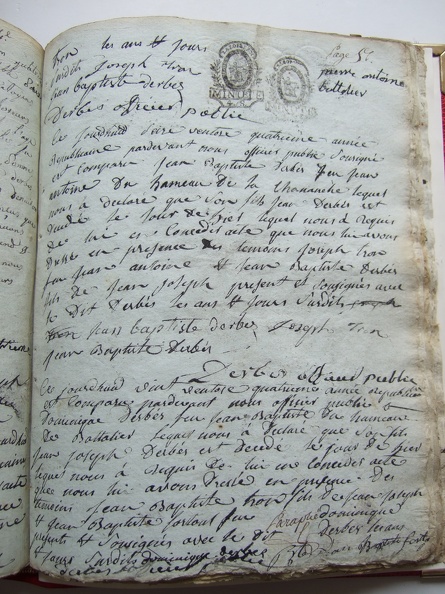 tron les ans et jours
susdits joseph tron
jean baptiste derbes
Derbes officier public
Page 5
pierre antoine
MINUTE
Ce jourdhui seise ventose quatrieme année
Republicaine pardevant nous officier public soussigné
est comparu jean Baptiste derbes feu jean
antoine du hameau de la lequel
nous a declaré que son fils jean Derbes est
decedé le jour de hier lequel nous a requis
de lui en conceder acte que nous lui avons
Dressé en presence des temoins joseph tron
feu jean antoine et jean Baptiste Derbes
fils de jean joseph present et soussignés avec
le Dit Derbes les ans et jours susdits
jean baptiste derbes joseph tron
jean Baptiste Derbes
Derbes officier public
Ce jourdhui vint ventose quatrieme année republicaine
est comparu pardevant nous officier public
dominique Derbes feu jean Baptiste du hameau
de lequel nous a declaré que son fils
jean joseph Derbes est decedé le jour de hier
lequel nous a requis de lui en conceder acte
que nous lui avons Dressé en presence des
temoins jean Baptiste tron fils de jean joseph
et jean Baptiste feu dominique
presents et soussignés avec le dit derbes les ans
et jours susdits dominique derbes
derbes officier public